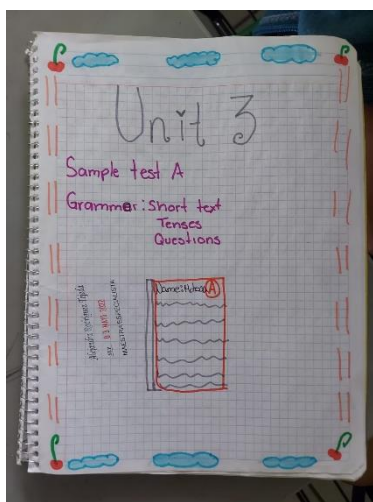 Unit 3
Sample test A
Grammar: Short text
Tenses
Questions
A
03 MAYO 2022